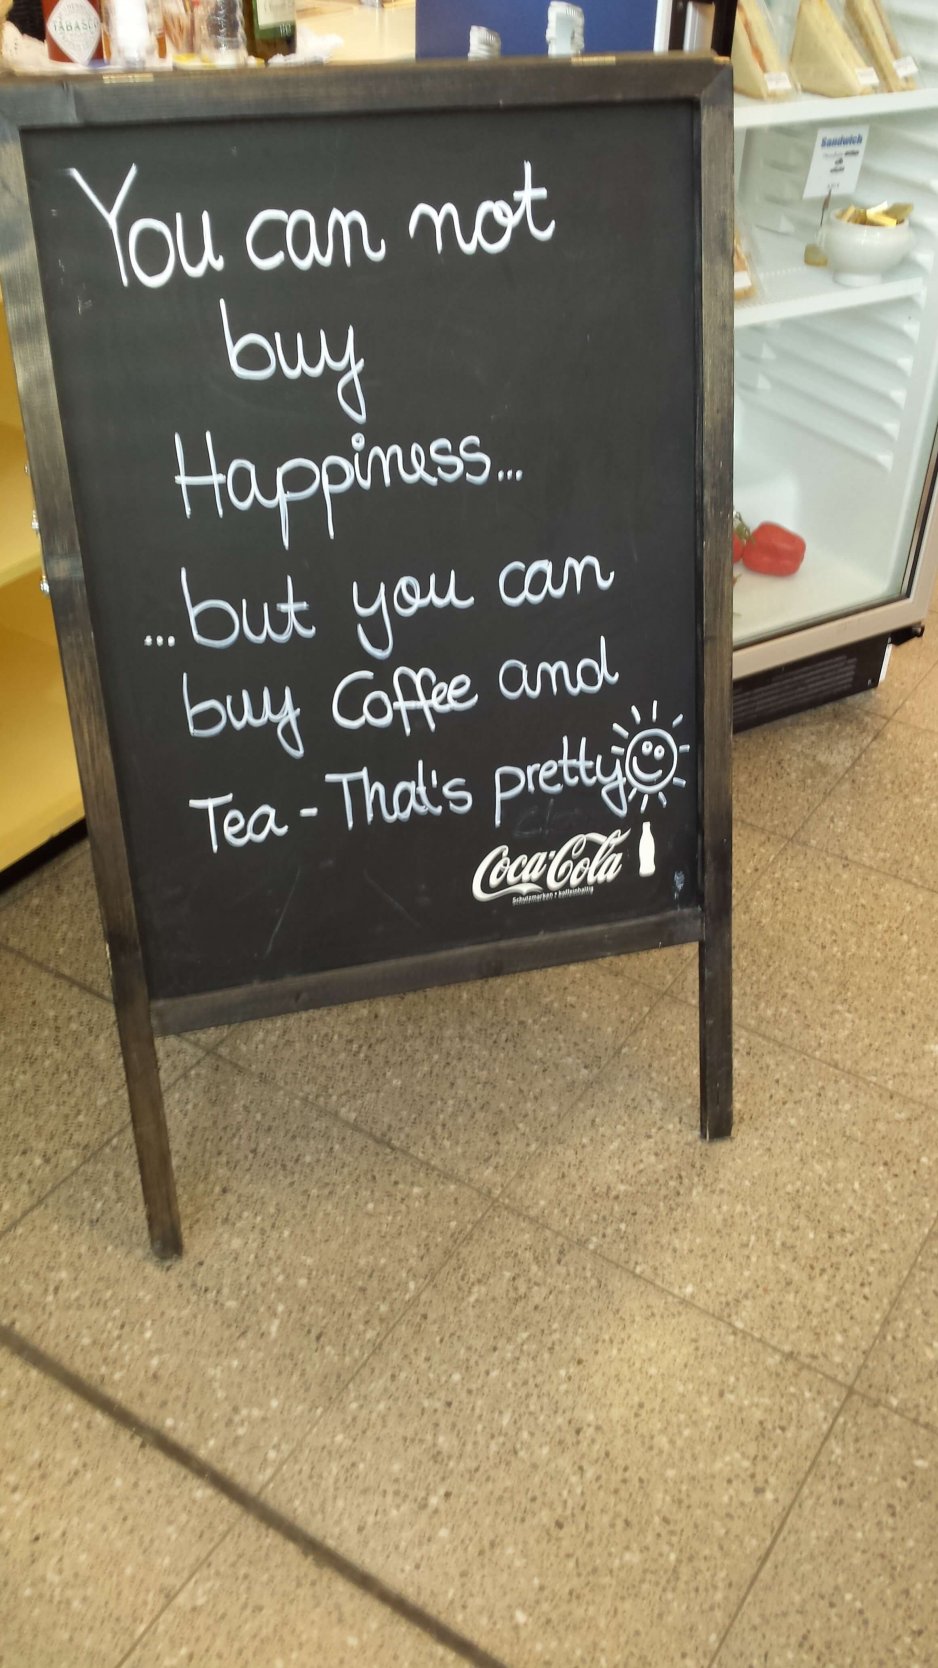 TABASCO
Sandwich
You can not
buy
Happiness...
...but you can
buy Coffee and
Tea - That's pretty
Coca-Cola
Schutzmarken • koffeinhaltig